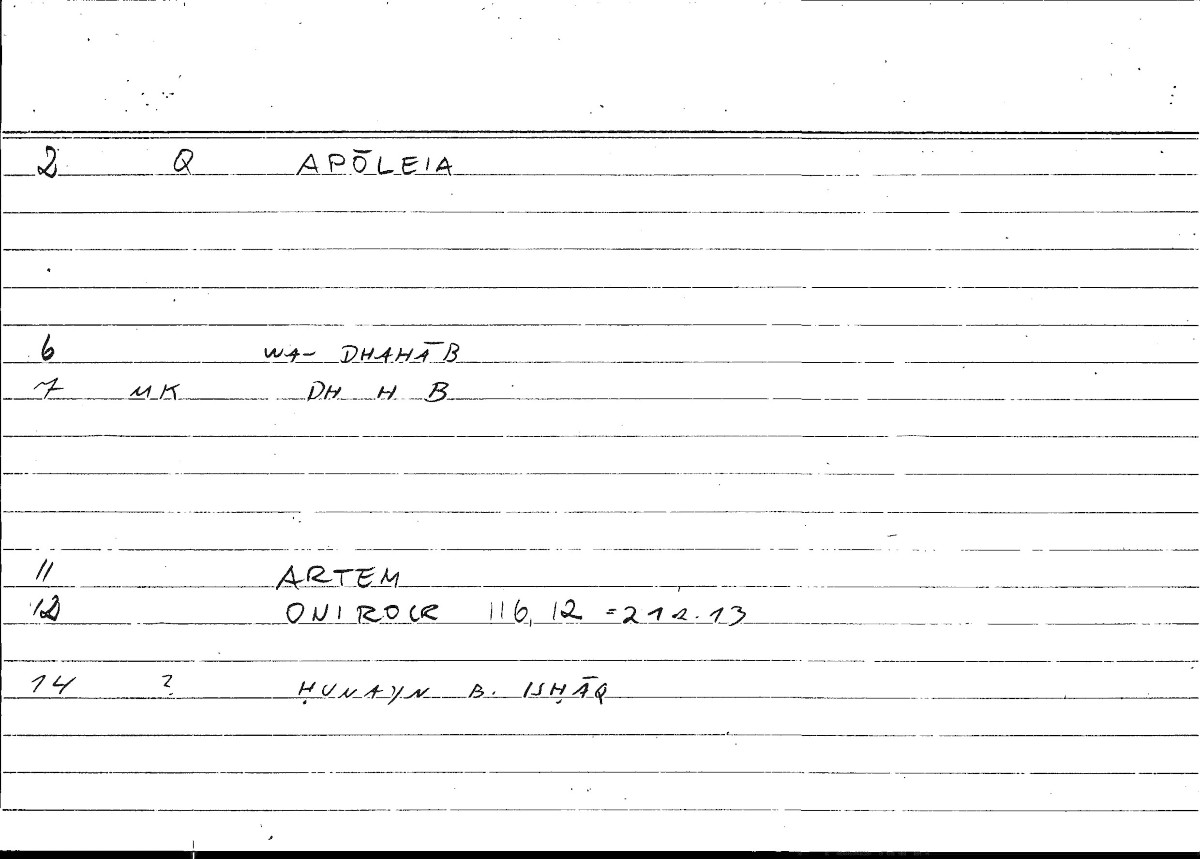 2 Q APŌLEIA
6 WA- DHAHĀB
7 MK DH H B
11 ARTEM
12 ONIROCR 116,12 = 212.13
14 ? ḤUNAYN B. ISḤĀQ